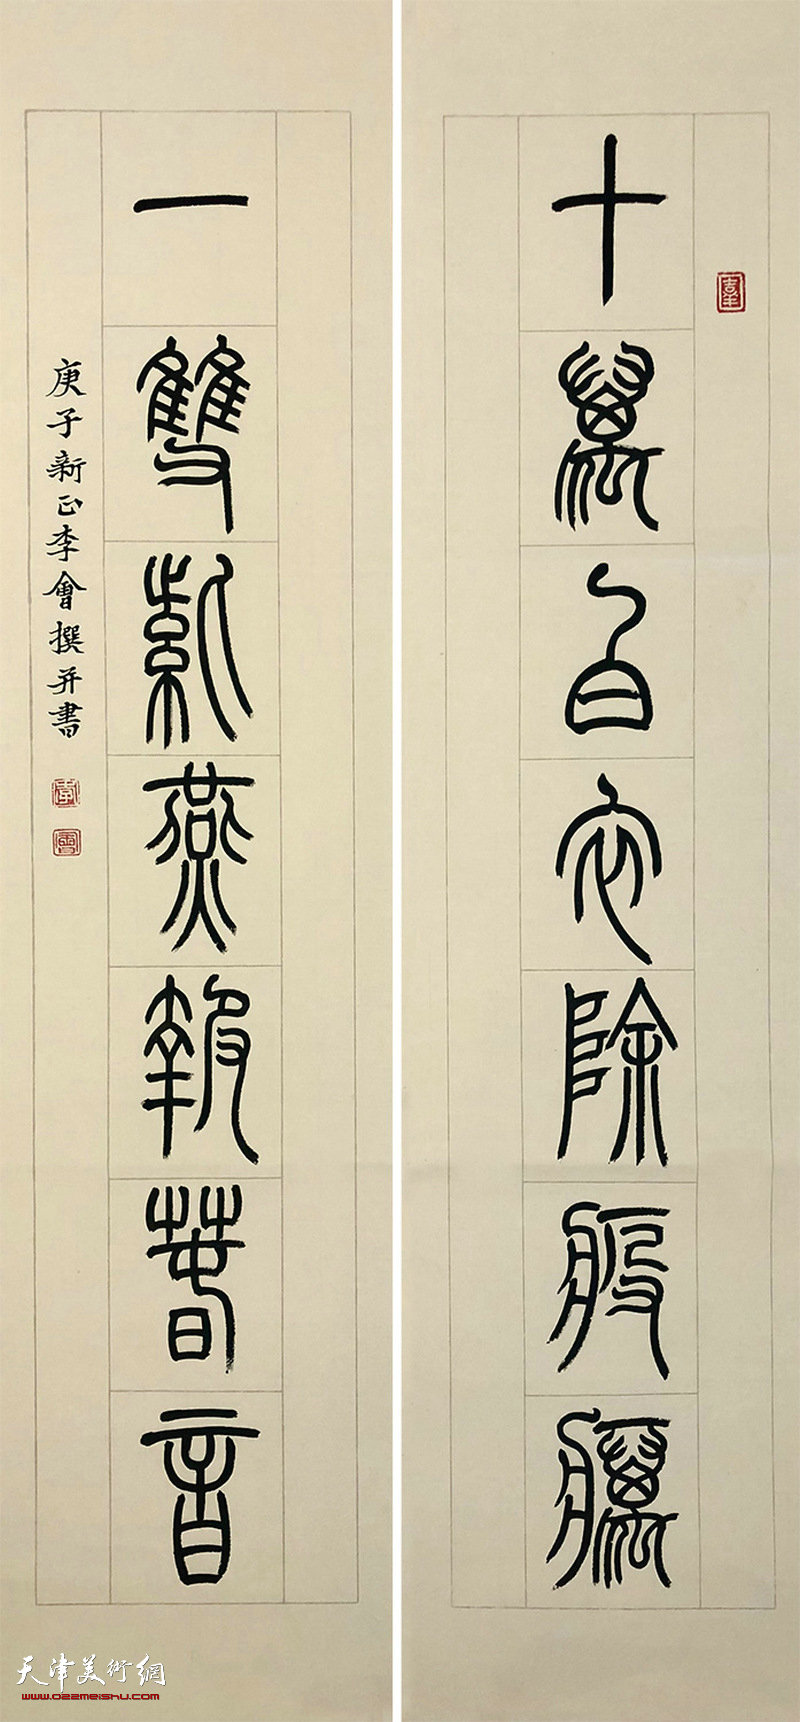 十萬白衣除疫癘
一雙紫燕報春音
庚子新正李會撰并書
天津美術網
www.022meishu.com